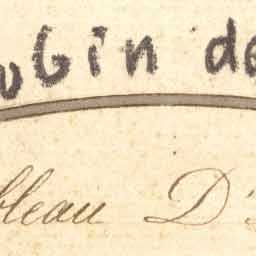 ubin de
bleau D'